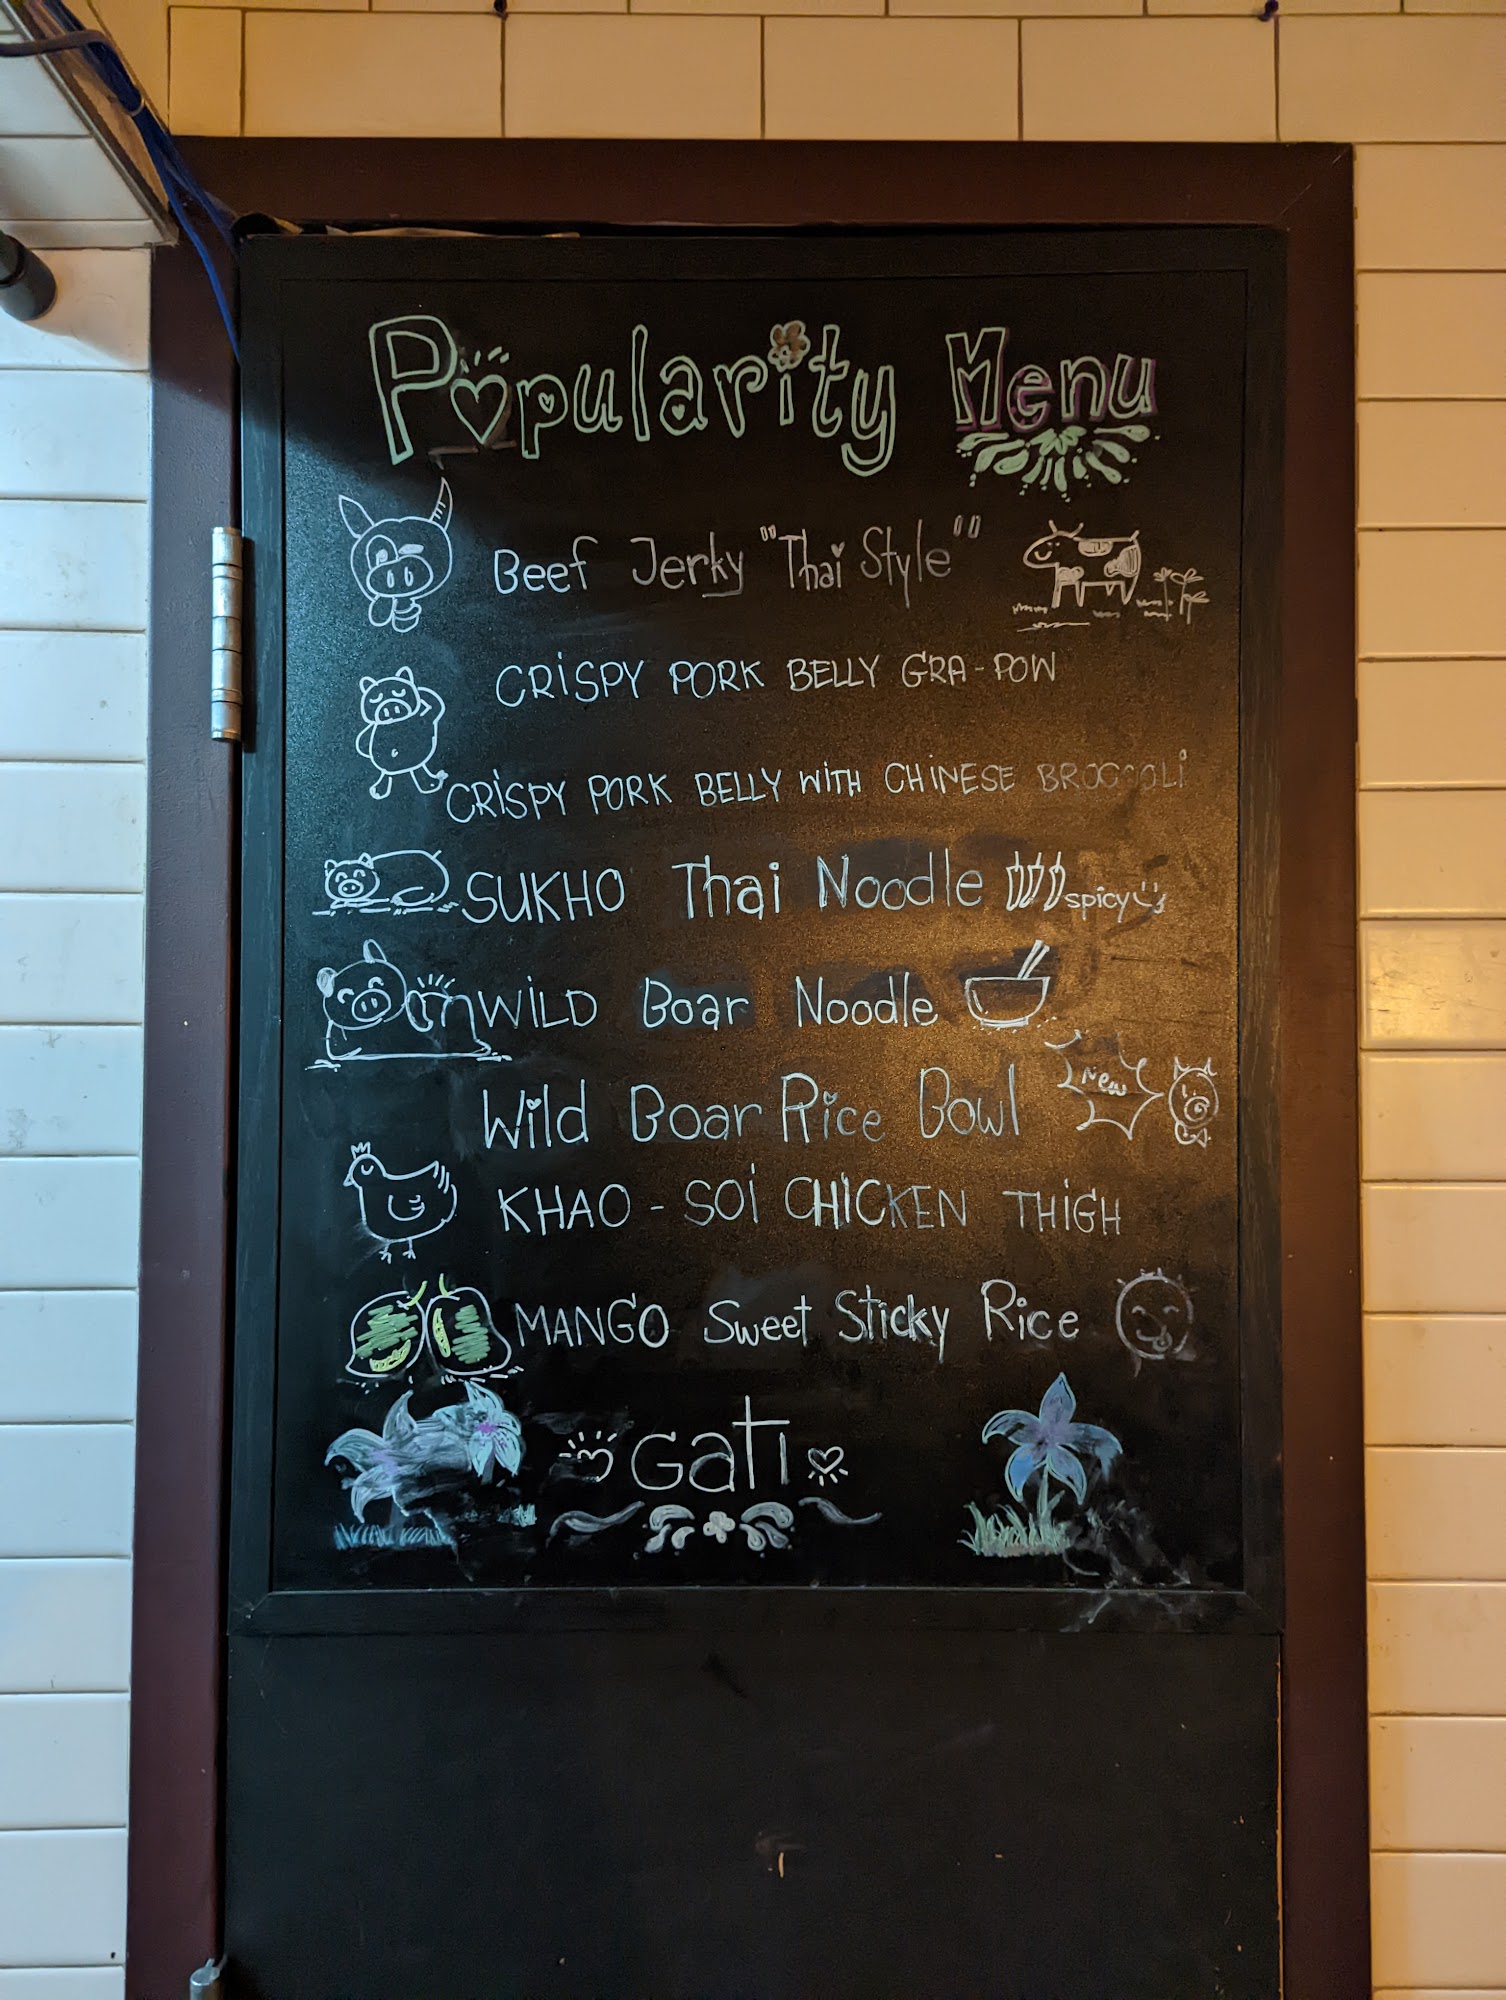 Popularity Menu
Beef Jerky "Thai Style"
CRiSPY PORK BELLY GRA-POW
CRiSPY PORK BELLY WiTH CHiNESE BROCCOLi
SUKHO Thai Noodle spicy
WiLD Boar Noodle
Wild Boar Rice Bowl New
KHAO-SOi CHICKEN THiGH
MANGO Sweet Sticky Rice
Gati